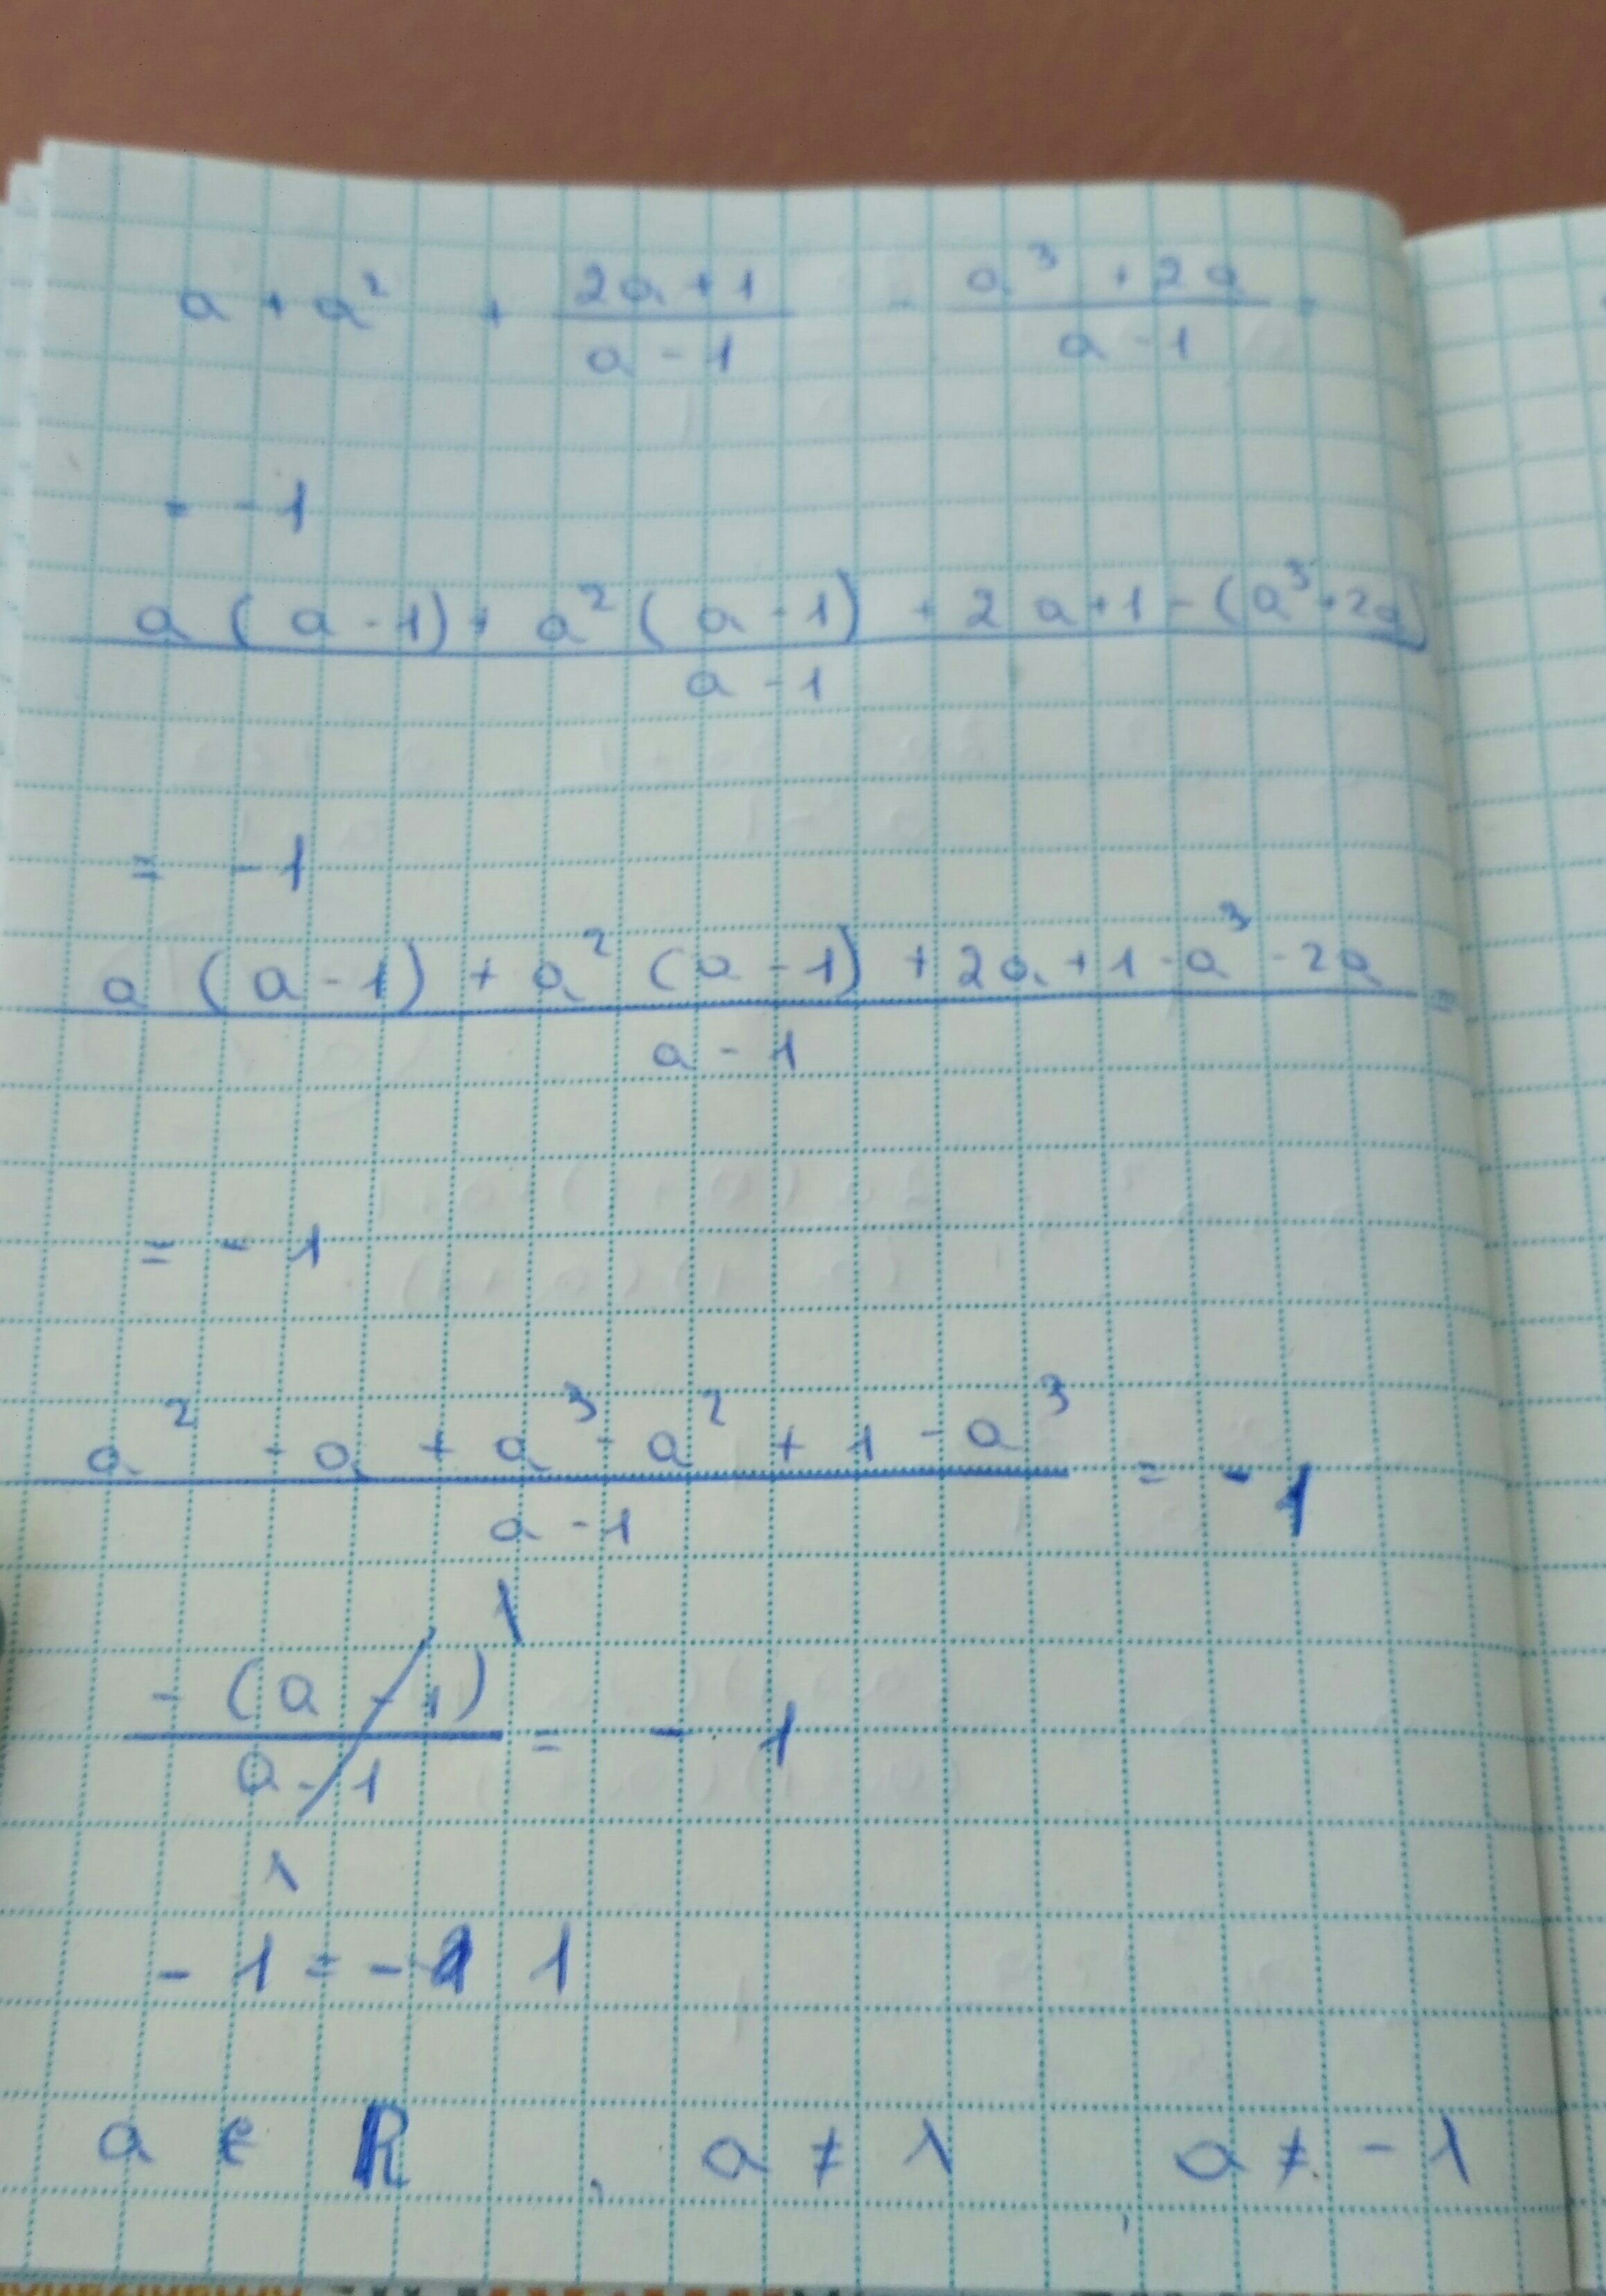 a + a² + (2a + 1)/(a - 1) - (a³ + 2a)/(a - 1) =
= -1
(a(a - 1) + a²(a - 1) + 2a + 1 - (a³ + 2a))/(a - 1)
= -1
(a(a - 1) + a²(a - 1) + 2a + 1 - a³ - 2a)/(a - 1) =
= -1
(a² - a + a³ - a² + 1 - a³)/(a - 1) = -1
1
-(a - 1)/(a - 1) = -1
1
-1 = - 1
a ∈ R , a ≠ 1 , a ≠ -1